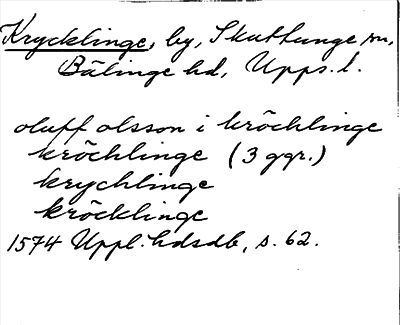 Krycklinge, by, Skuttunge sn,
Bälinge hd, Upps. l.
oluff olsson i kröchlinge
kröchlinge (3 ggr.)
krychlinge
kröcklinge
1574 Uppl. hdsdb, s. 62.